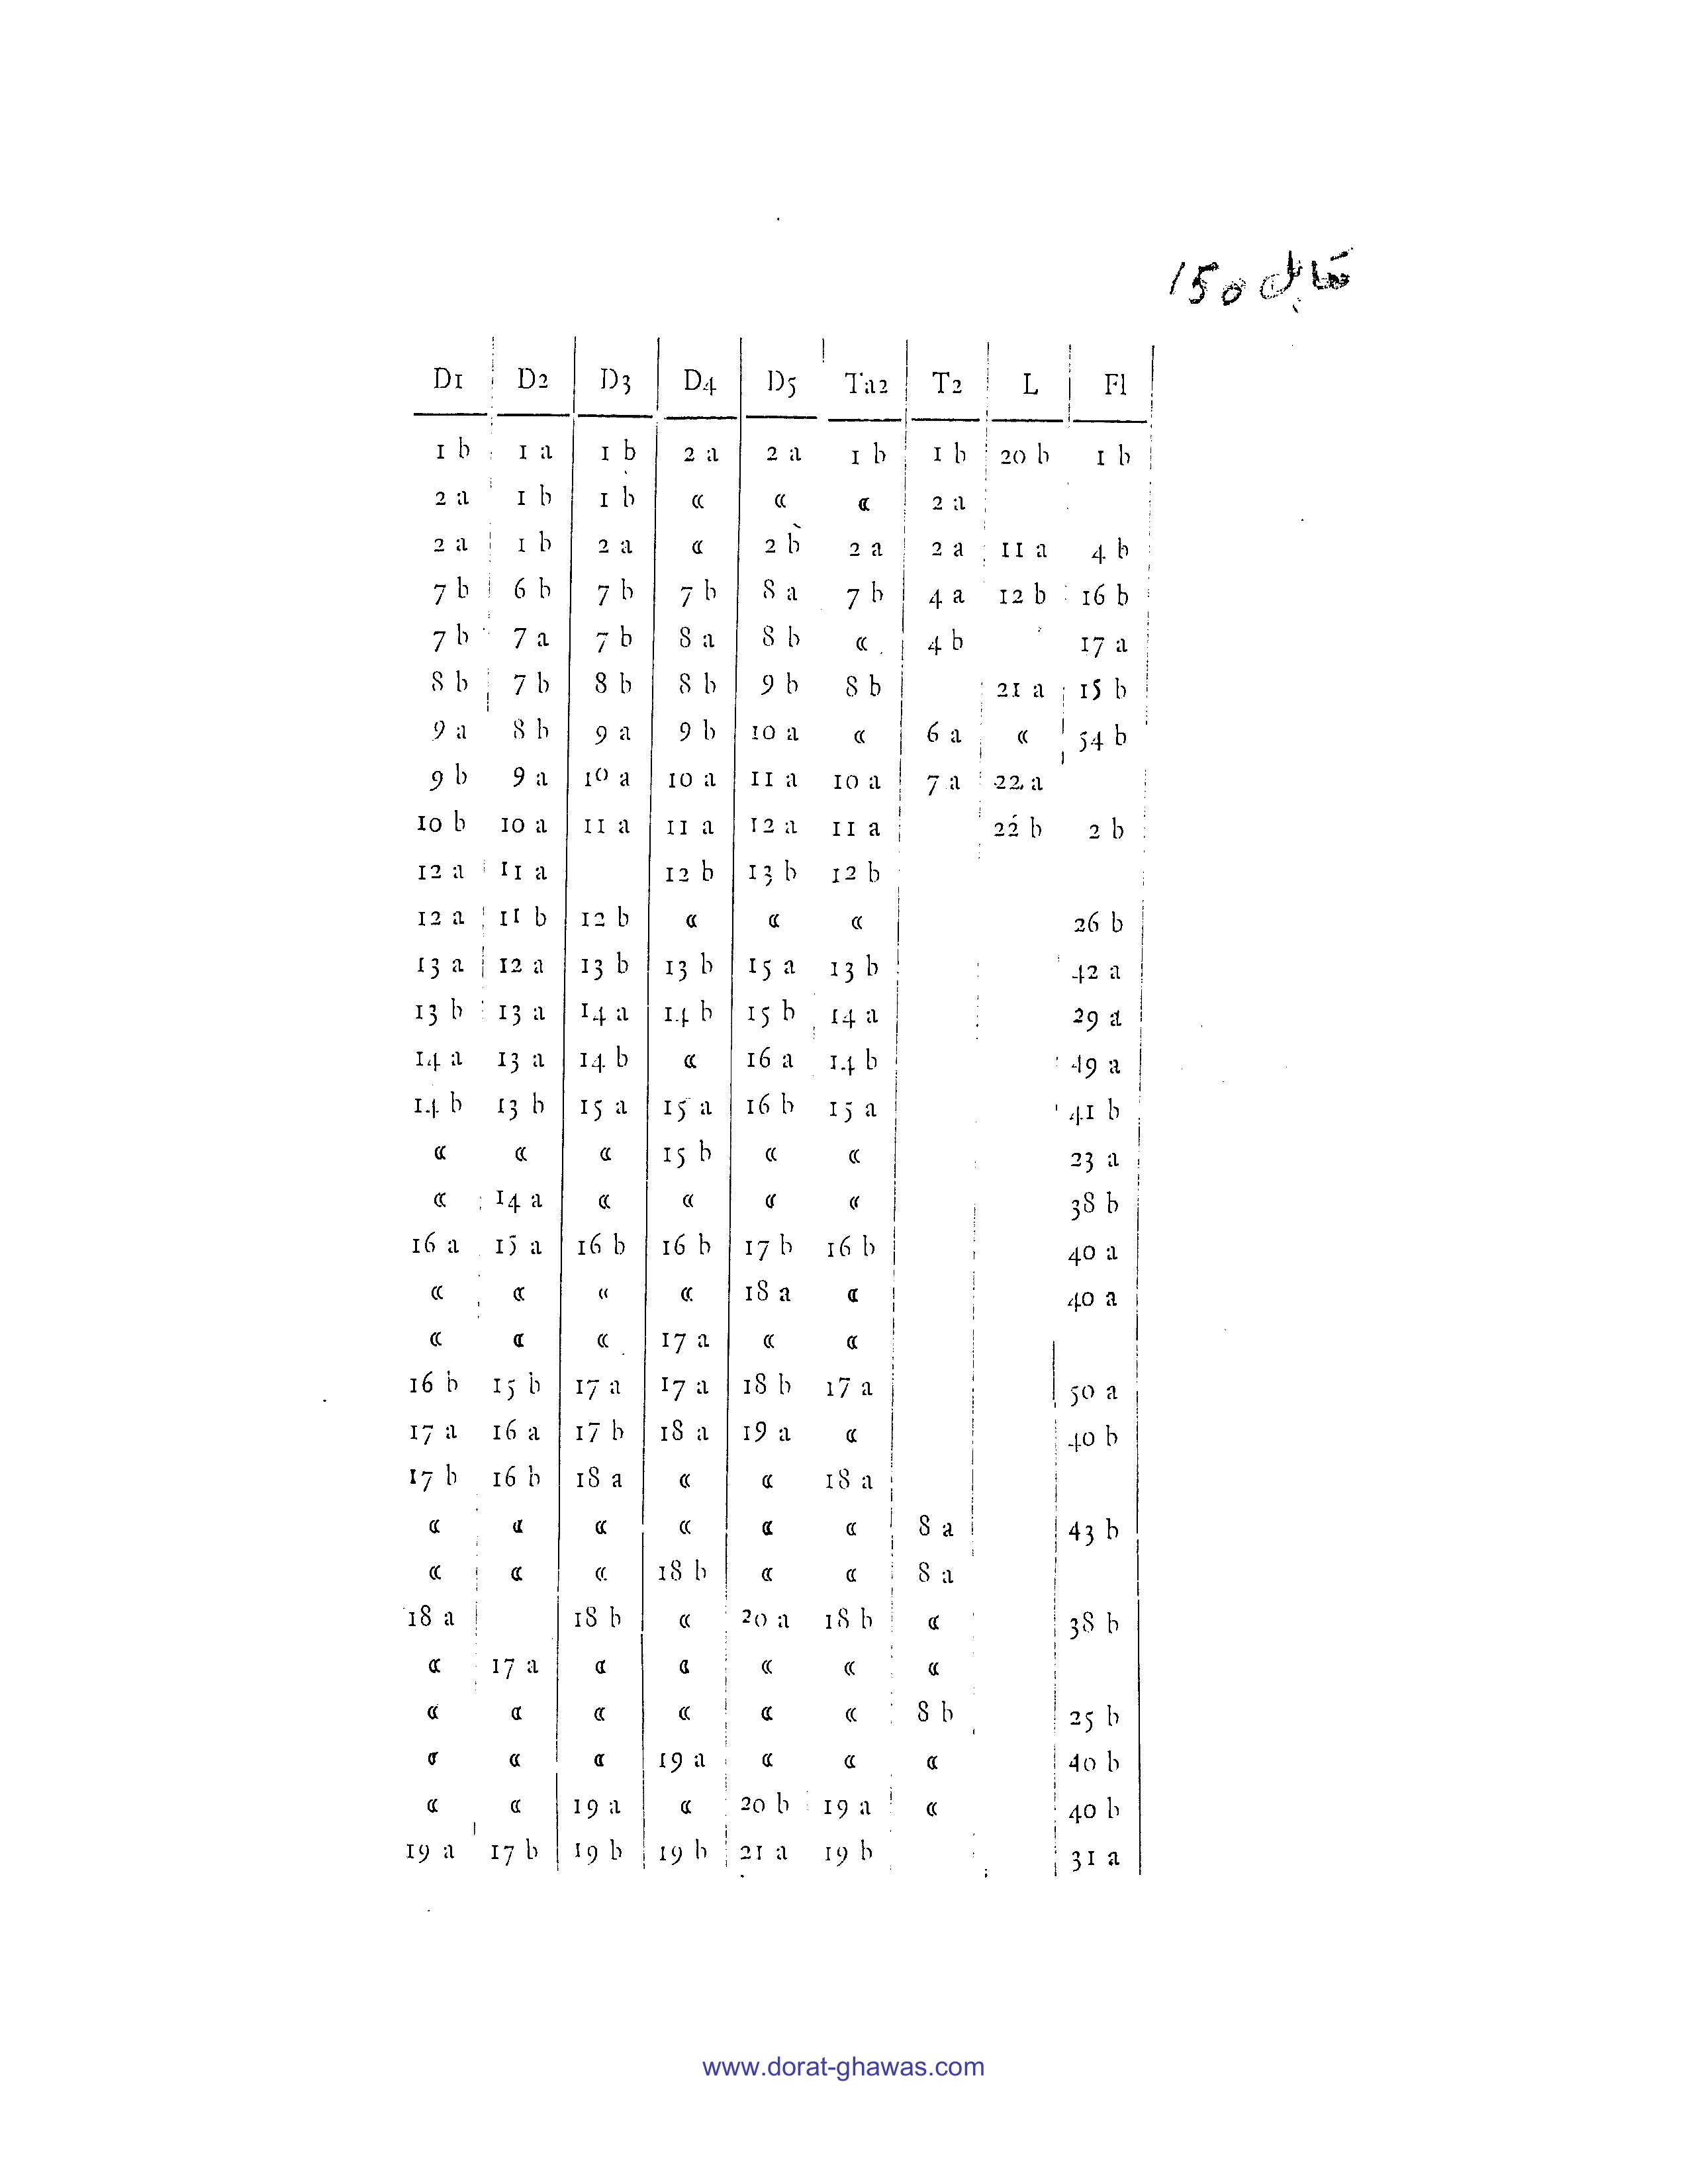 تقابل 150
D1 D2 D3 D4 D5 Ta2 T2 L Fl
1 b 1 a 1 b 2 a 2 a 1 b 1 b 20 b 1 b
2 a 1 b 1 b « « « 2 a
2 a 1 b 2 a « 2 b 2 a 2 a 11 a 4 b
7 b 6 b 7 b 7 b 8 a 7 b 4 a 12 b 16 b
7 b 7 a 7 b 8 a 8 b « 4 b 17 a
8 b 7 b 8 b 8 b 9 b 8 b 21 a 15 b
9 a 8 b 9 a 9 b 10 a « 6 a « 54 b
9 b 9 a 10 a 10 a 11 a 10 a 7 a 22 a
10 b 10 a 11 a 11 a 12 a 11 a 22 b 2 b
12 a 11 a 12 b 13 b 12 b
12 a 11 b 12 b « « « 26 b
13 a 12 a 13 b 13 b 15 a 13 b 42 a
13 b 13 a 14 a 14 b 15 b 14 a 29 a
14 a 13 a 14 b « 16 a 14 b 49 a
14 b 13 b 15 a 15 a 16 b 15 a 41 b
« « « 15 b « « 23 a
« 14 a « « « « 38 b
16 a 15 a 16 b 16 b 17 b 16 b 40 a
« « « « 18 a « 40 a
« « « 17 a « «
16 b 15 b 17 a 17 a 18 b 17 a 50 a
17 a 16 a 17 b 18 a 19 a « 40 b
17 b 16 b 18 a « « 18 a
« « « « « « 8 a 43 b
« « « 18 b « « 8 a
18 a 18 b « 20 a 18 b « 38 b
« 17 a « « « « «
« « « « « « 8 b 25 b
« « « 19 a « « « 40 b
« « 19 a « 20 b 19 a « 40 b
19 a 17 b 19 b 19 b 21 a 19 b 31 a
www.dorat-ghawas.com